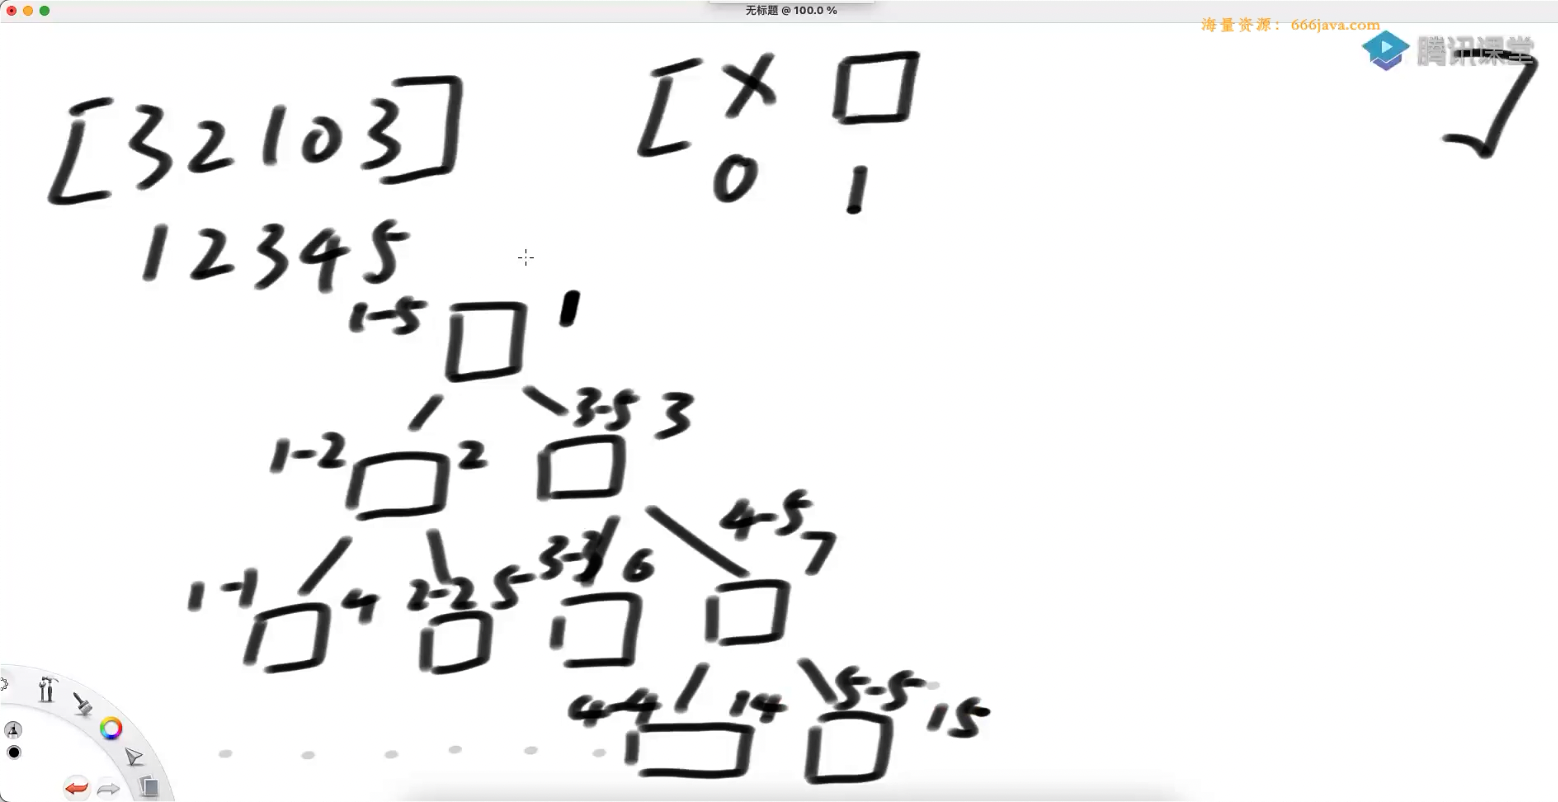 无标题 @ 100.0 %
海量资源：666java.com
腾讯课堂
[ 3 2 1 0 3 ]
[ X □ ]
0 1
1 2 3 4 5
1-5 1
3-5 3
1-2 2
4-5 7
3-3 6
1-1 4 2-2 5
4-4 14 5-5 15